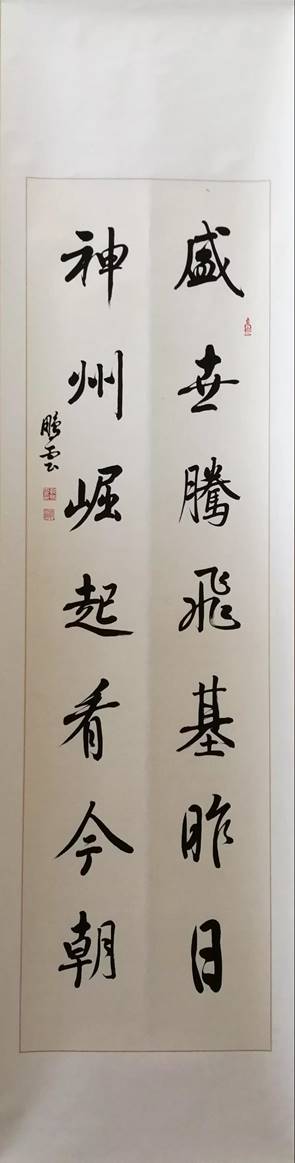 盛世騰飛基昨日
神州崛起看今朝
鵬雲